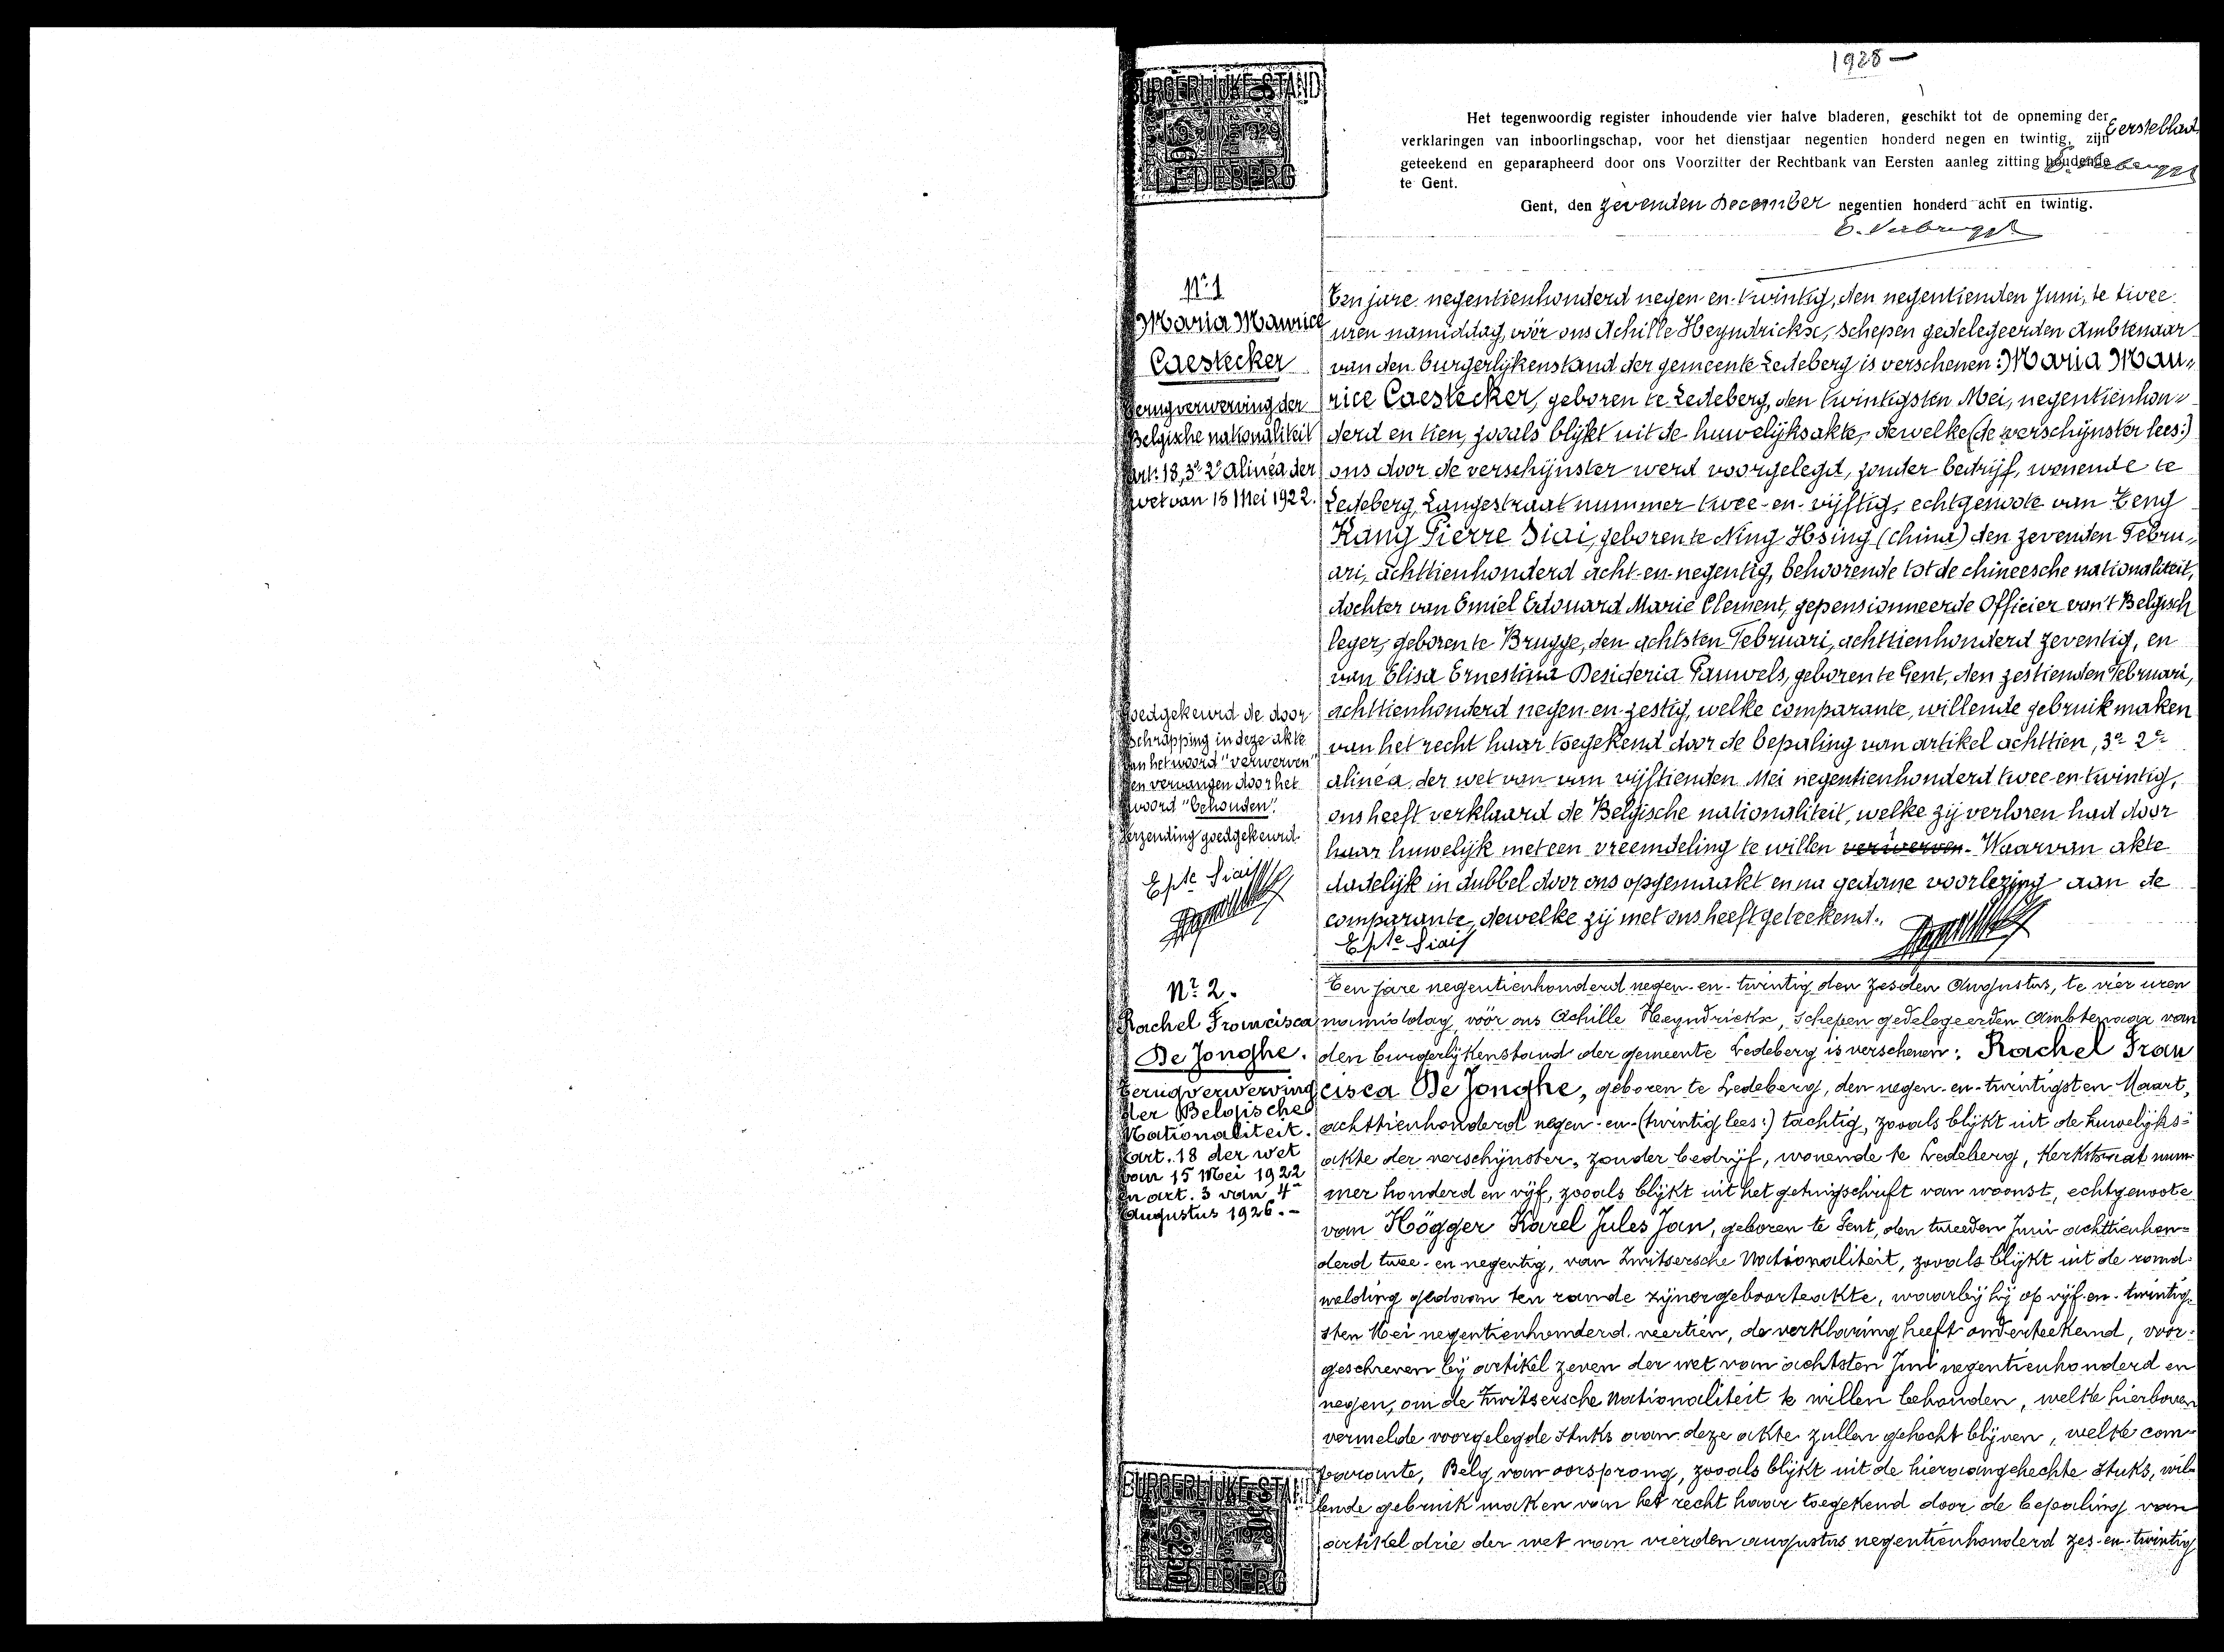 1928 —
BURGERLIJKE-STAND
LEDEBERG
Het tegenwoordig register inhoudende vier halve bladeren, geschikt tot de opneming der
verklaringen van inboorlingschap, voor het dienstjaar negentien honderd negen en twintig, zijn
geteekend en geparapheerd door ons Voorzitter der Rechtbank van Eersten aanleg zitting houdende
te Gent.
Eersteblad
Gent, den zevenden December negentien honderd acht en twintig.
Nr. 1
Maria Maurice
Caestecker
Terugverwerving der
Belgische nationaliteit
Art: 18, 3° 2° Alinéa der
wet van 15 Mei 1922.
Ten jare negentienhonderd negen-en-twintig, den negentienden Juni, te twee
uren namiddag, vóór ons Achille Heyndrickx, schepen gedelegeerden Ambtenaar
van den burgerlijkenstand der gemeente Ledeberg is verschenen: Maria Mau„
rice Caestecker, geboren te Ledeberg, den twintigsten Mei, negentienhon„
derd en tien, zooals blijkt uit de huwelijksakte, dewelke (de verschijnster lees:)
ons door de verschijnster werd voorgelegd, zonder bedrijf, wonende te
Ledeberg, Langestraat nummer twee-en-vijftig, echtgenoote van Teng
Kang Pierre Siai, geboren te Ning Hsing (china) den zevenden Febru„
ari, achttienhonderd acht-en-negentig, behoorende tot de chineesche nationaliteit,
dochter van Emiel Edouard Marie Clement, gepensionneerde Officier van't Belgisch
leger, geboren te Brugge, den achtsten Februari, achttienhonderd zeventig, en
van Elisa Ernestina Desideria Pauwels, geboren te Gent, den zestienden Februari,
achttienhonderd negen-en-zestig, welke comparante, willende gebruik maken
van het recht haar toegekend door de bepaling van artikel achttien, 3° 2°
alinéa der wet van van vijftienden Mei negentienhonderd twee-en-twintig,
ons heeft verklaard de Belgische nationaliteit, welke zij verloren had door
haar huwelijk met een vreemdeling te willen verwerven. Waarvan akte
dadelijk in dubbel door ons opgemaakt en na gedane voorlezing aan de
comparante, dewelke zij met ons heeft geteekend.
Epte Siai
Goedgekeurd de door
schrapping in deze akte
van het woord "verwerven"
en vervangen door het
woord "behouden".
Verzending goedgekeurd.
Epte Siai
Nr. 2.
Rachel Francisca
De Jonghe.
Terugverwerving
der Belgische
Nationaliteit.
art. 18 der wet
van 15 Mei 1922
en art. 3 van 4
Augustus 1926.-
Ten jare negentienhonderd negen-en-twintig den zesden Augustus, te vier uren
namiddag, vóór ons Achille Heyndrickx, schepen gedelegeerden Ambtenaar van
den burgerlijkenstand der gemeente Ledeberg is verschenen: Rachel Fran
cisca De Jonghe, geboren te Ledeberg, den negen-en-twintigsten Maart,
achttienhonderd negen-en-(twintig lees:) tachtig, zooals blijkt uit de huwelijks=
akte der verschijnster, zonder bedrijf, wonende te Ledeberg, Kerkstraat num-
mer honderd en vijf, zooals blijkt uit het getuigschrift van woonst, echtgenoote
van Högger Karel Jules Jan, geboren te Gent, den tweeden Juni achttienhon=
derd twee-en negentig, van Zwitsersche Nationaliteit, zooals blijkt uit de rand-
melding gedaan ten rande zijner geboorteakte, waarbij hij op vijf-en-twintig-
sten Mei negentienhonderd veertien, de verklaring heeft onderteekend, voor-
geschreven bij artikel zeven der wet van achtsten Juni negentienhonderd en
negen, om de Zwitsersche Nationaliteit te willen behouden, welke hierboven
vermelde voorgelegde stuks aan deze akte zullen gehecht blijven, welke com-
parante, Belg van oorsprong, zooals blijkt uit de hieraangehechte stuks, wil-
lende gebruik maken van het recht haar toegekend door de bepaling van
artikel drie der wet van vierden augustus negentienhonderd zes-en-twintig
BURGERLIJKE-STAND
LEDEBERG